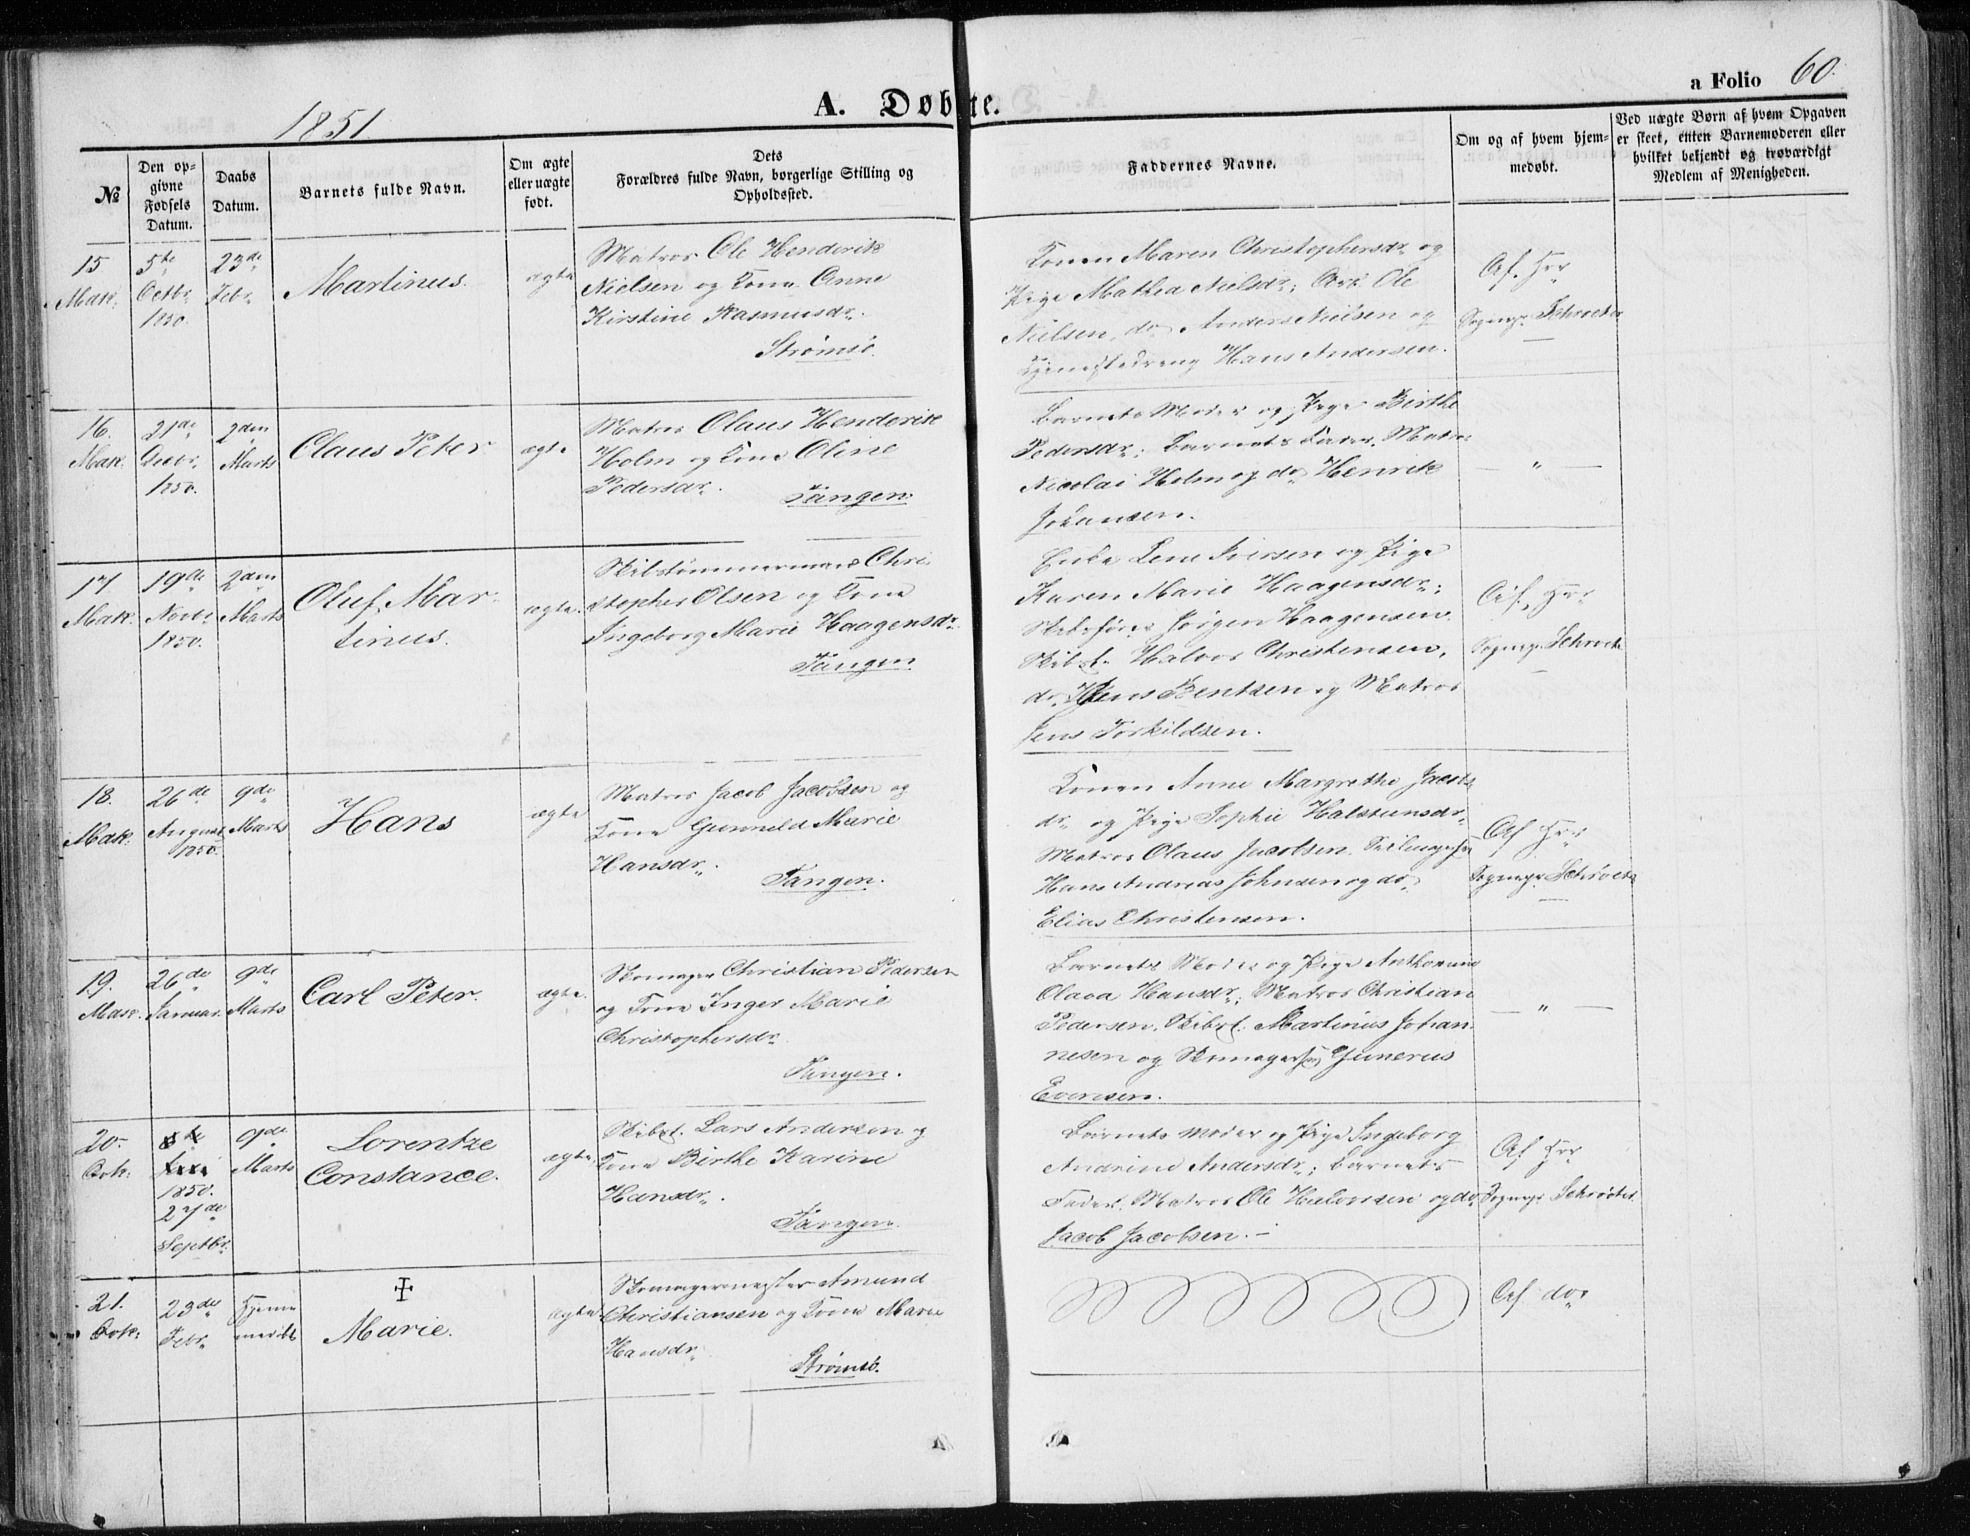 1851
A. Døbte.
a Folio 60.
№
Den opgivne Fødsels Datum.
Daabs Datum.
Barnets fulde Navn.
Om ægte eller uægte født.
Dets Forældres fulde Navn, borgerlige Stilling og Opholdssted.
Faddernes Navne.
Om og af hvem hjemmedøbt.
Ved uægte Børn af hvem Opgaven er skeet, enten Barnemoderen eller hvilket bekjendt og troværdigt Medlem af Menigheden.
15
Mak.
5te
Octbr.
1850.
23de
Febr.
Martinus.
ægte
Matros Ole Henderik
Nielsen og Kone Anne
Kirstine Rasmusdr.
Strømsø.
Konen Maren Christophersdr. og
Pige Mathea Nielsdr; Ole
Nielsen, do Anders Nielsen og
Tjenestedreng Hans Andersen.
Af Hrr
Sognepr. Schroeter
16.
Mak.
21de
Decbr.
1850.
2den
Marts
Claus Peter
ægte
Matros Olaus Henderik
Holm og Kone Oline
Pedersdr.
Tangen.
Barnets Moder og Pige Birthe
Pedersdr; Barnets Fader, Matros
Nicolai Holm og do Henrik
Johansen.
— " —
17
Mak.
19de
Novbr.
1850.
2den
Marts
Oluf Mar-
tinus.
ægte.
Skibstømmermand Chri-
stopher Olsen og Kone
Ingeborg Marie Haagensdr.
Tangen
Enke Lene Iversen og Pige
Karen Marie Haagensdr;
Skibsfører Jørgen Haagensen
Skibst. Halvor Christensen,
do Jens Bentsen og Matros
Jens Torkildsen.
Af Hrr
Sognepr. Schroeter
18.
Mak.
26de
August
1850.
9de
Marts
Hans
ægte
Matros Jacob Jacobsen og
Kone Gunneld Marie
Hansdr.
Tangen.
Konen Anne Margrethe Jacobs-
dr. og Pige Sophie Halstensdr,
Matros Olaus Jacobsen,
Hans Andreas Johnsen og do
Elias Christensen.
Af Hrr
Sognepr. Schrøeter
19.
Mask.
26de
Januar.
9de
Marts
Carl Peter.
ægte.
Skomager Christian Pedersen
og Kone Inger Marie
Christophersdr.
Tangen.
Barnets Moder og Pige
Olava Hansdr; Matros Christian
Pedersen, Skibst. Martinus Johan-
nesen og Gunerus
Evensen.
— " —
20.
Qvk.
1850.
27de
Septbr.
9de
Marts
Lorentze
Constance.
ægte
Skibst. Lars Andersen og
Kone Birthe Karine
Hansdr.
Tangen.
Barnets Moder og Pige Ingeborg
Andrine Andersdr; Barnets
Fader, Matros Ole Halvorsen og do
Jacob Jacobsen.
Af Hrr
Sognepr. Schrøeter
21.
Qvk.
23de
Febr.
Hjemme
Marie.
ægte
Skomagermester Amund
Christiansen og Kone Marie
Hansdr.
Strømsø.
Af do